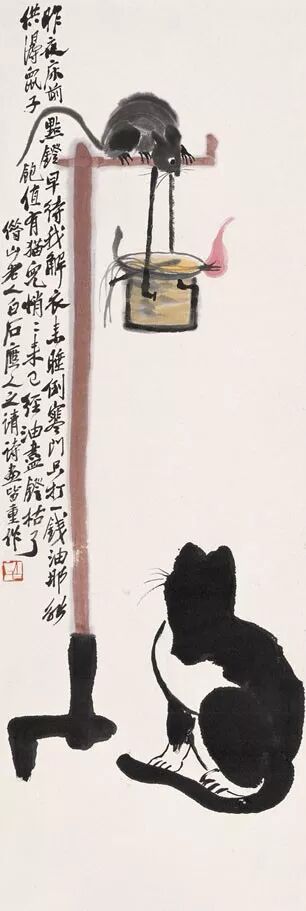 昨夜床前點鐙早待我解衣來睡倒寒門只打一錢油那能
供得鼠子飽值有猫兒悄〻來已經油盡鐙枯了
借山老人白石應人之請詩畫皆重作